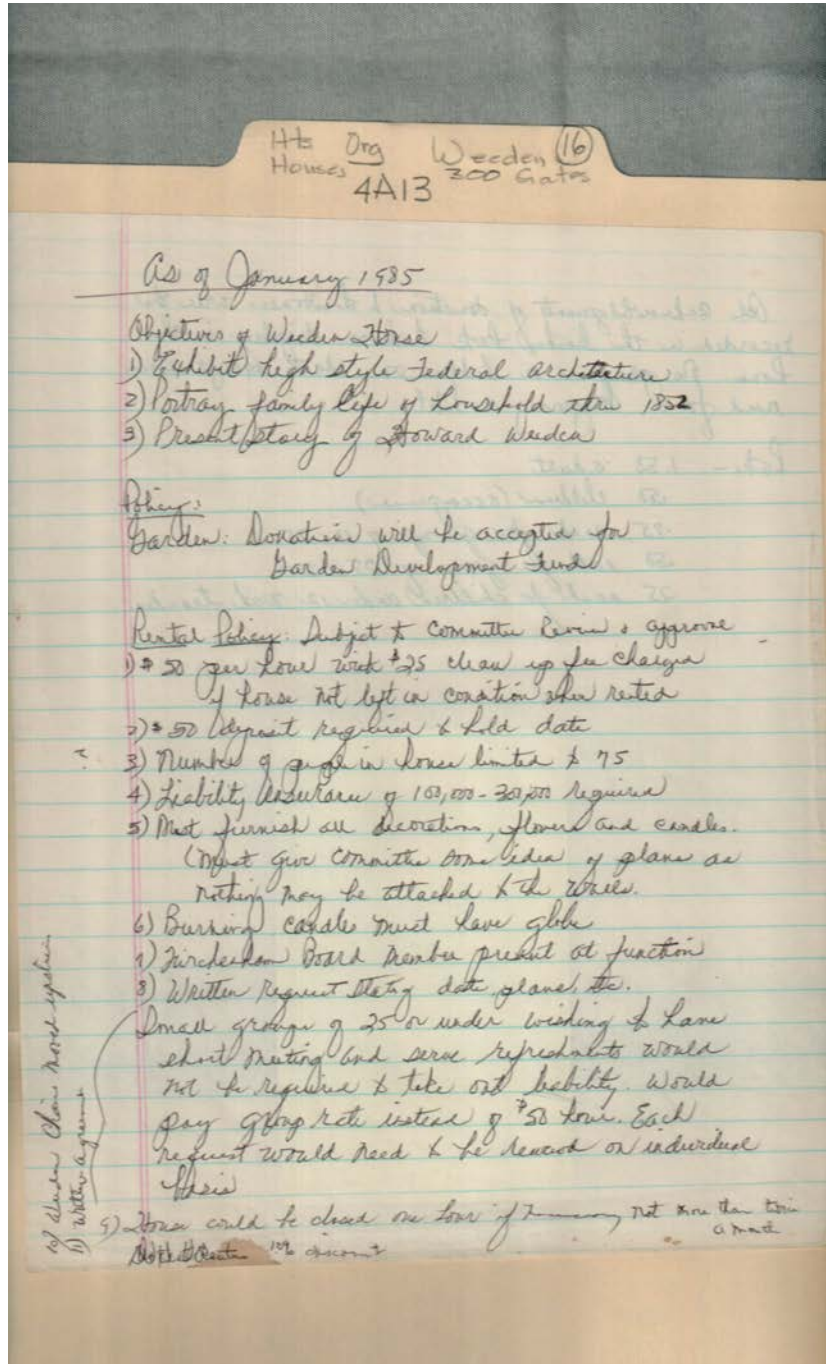 Hts Org Weeden 16
Houses 300 Gates
4A13
As of January 1985
Objectives of Weeden House
1) Exhibit high style Federal architecture
2) Portray family life of household thru 1852
3) Present story of Howard Weeden
Policy:
Garden: Donations will be accepted for
Garden Development Fund
Rental Policy: Subject to Committee Review & approve
1) $50 per hour with $25 clean up fee charged
if house not left in condition when rented
2) $50 deposit required to hold date
3) Number of people in house limited to 75
4) Liability Insurance of 100,000-300,000 required
5) Must furnish all decorations, flowers and candles.
(Must give committee some idea of plans as
nothing may be attached to the walls.
6) Burning candles must have globe
7) Board member present at function
8) Written request stating date, plans, etc.
Small groups of 25 or under wishing to have
short meeting and serve refreshments would
not be required to take out liability. Would
pay group rate instead of $50 hour. Each
request would need to be on individual
basis
9) House could be closed one hour if not more than twice
a month
10% discount
10) Weeden Chair moved upstairs
11) Written agreement